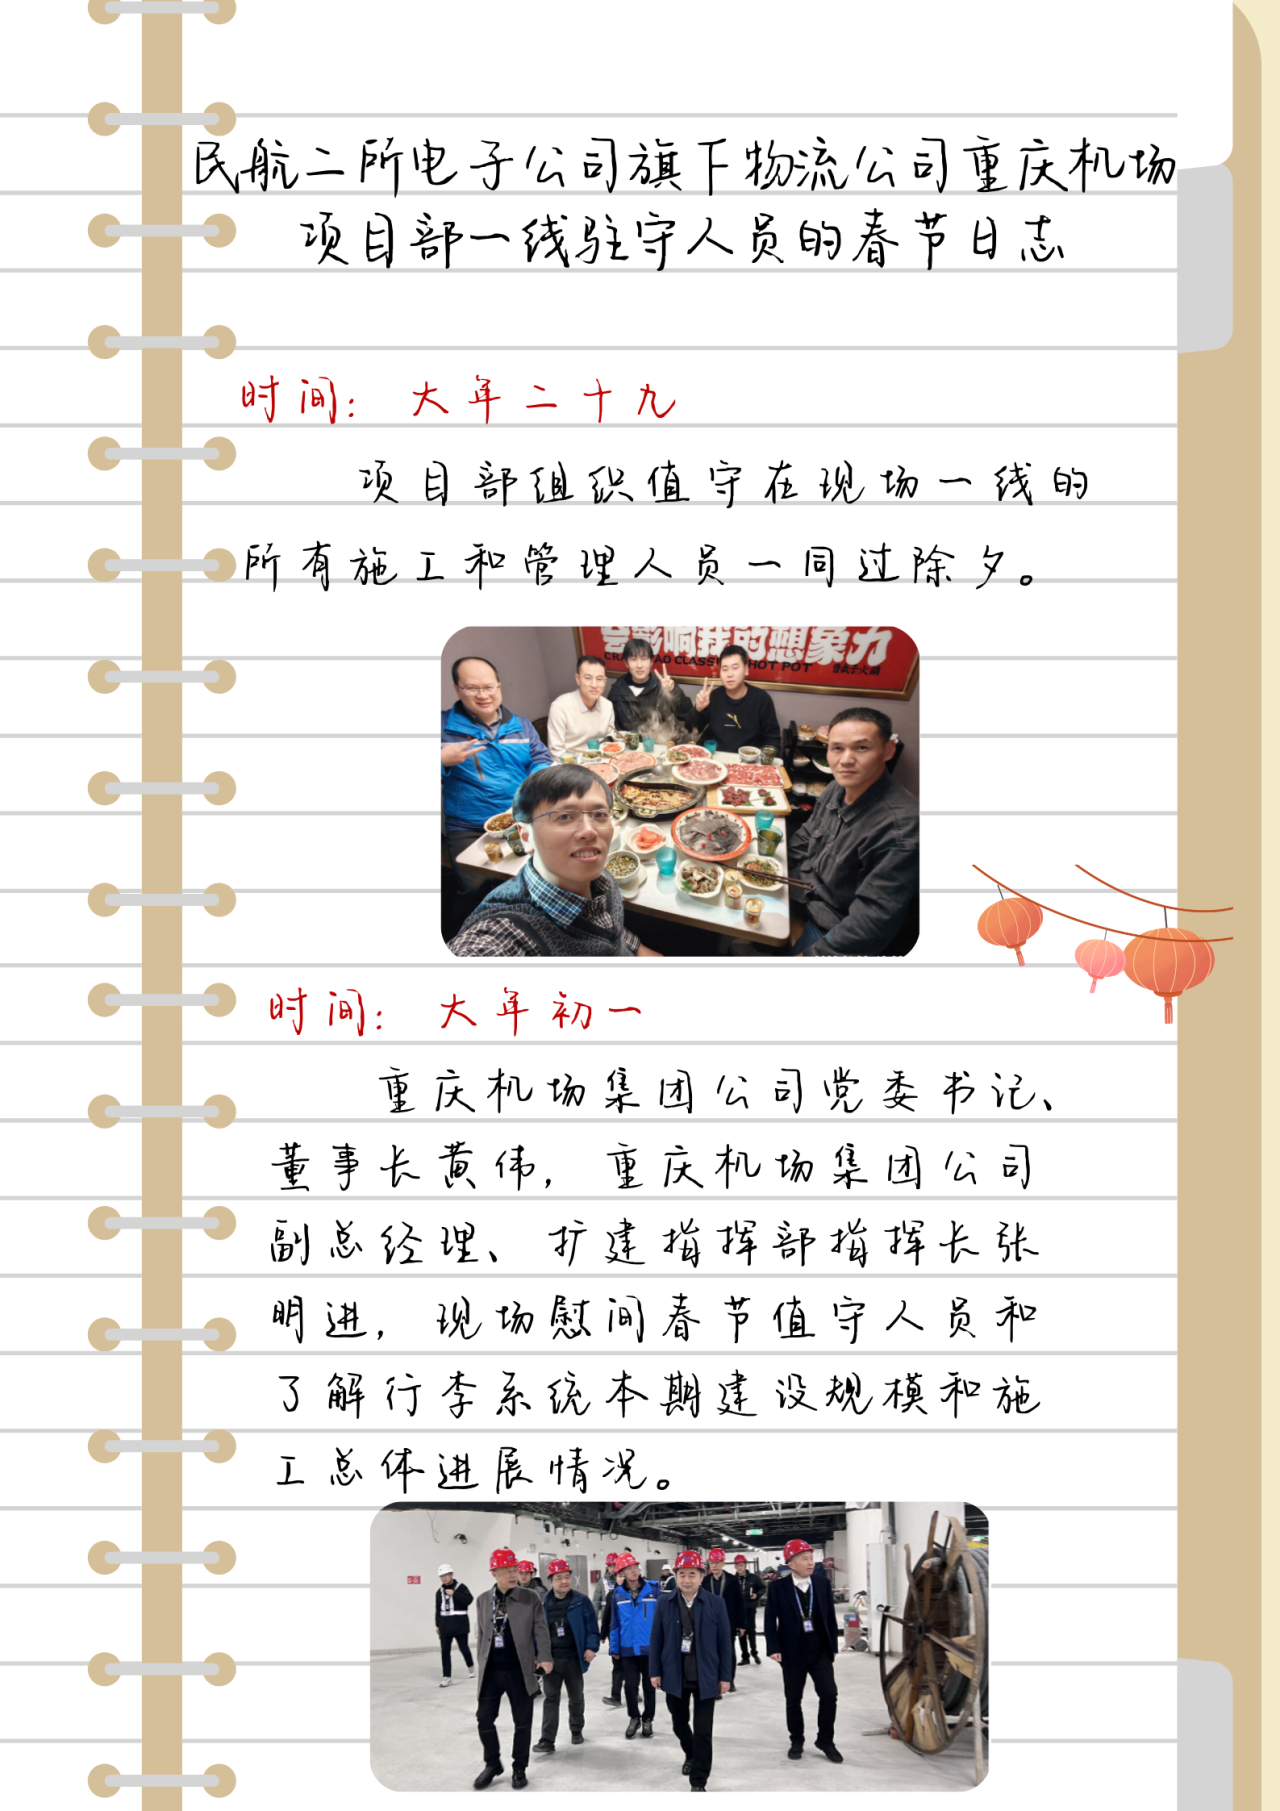 民航二所电子公司旗下物流公司重庆机场
项目部一线驻守人员的春节日志
时间：大年二十九
项目部组织值守在现场一线的
所有施工和管理人员一同过除夕。
影响我的想象力
CLASS
HOT POT
时间：大年初一
重庆机场集团公司党委书记、
董事长黄伟，重庆机场集团公司
副总经理、扩建指挥部指挥长张
明进，现场慰问春节值守人员和
了解行李系统本期建设规模和施
工总体进展情况。